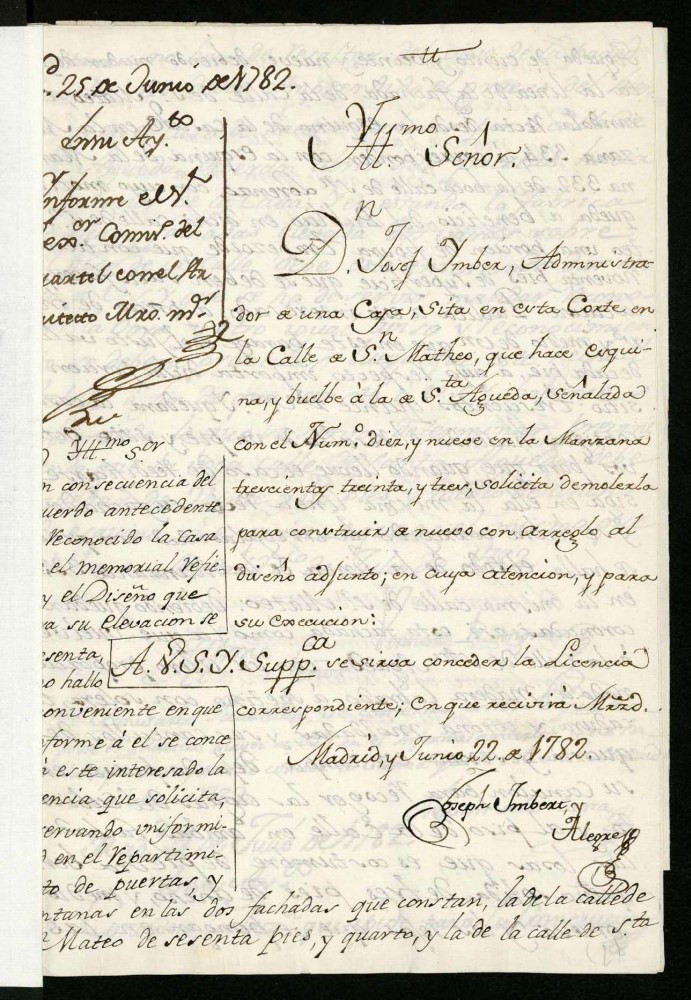 25, de Junio de 1782.
Ilmo. Ay.to
Informe el S.r
Comis.o del
Quartel con el Ar
quitecto Mro. m.or
Yll.mo s.or
En consecuencia del
acuerdo antecedente
Reconocido la Casa
el memorial Refie
y el Diseño que
para su elevacion se
presenta,
no hallo
inconveniente en que
conforme á el se conce
da á este interesado la
Licencia que solicita,
observando uniformi
dad en el Repartimi
ento de puertas y
ventanas en las dos fachadas que constan, la de la calle de
S.n Mateo de sesenta pies, y quarto, y la de la calle de S.ta
Yll.mo Señor.
D.n Josef Ymber, Administra-
dor de una Casa, sita en esta Corte en
la Calle de S.n Matheo, que hace esqui-
na, y buelbe à la de S.ta Agueda, señalada
con el Num.o diez, y nueve en la Manzana
trescientas treinta, y tres, solicita demolerla
para construir de nuevo con arreglo al
diseño adjunto; en cuya atencion, y para
su execucion:
A. V. S. Y. Supp.ca se sirva conceder la Licencia
correspondiente; en que recivirá Mrzd.
Madrid, y Junio 22. de 1782.
Joseph Imbert, y
Alegre